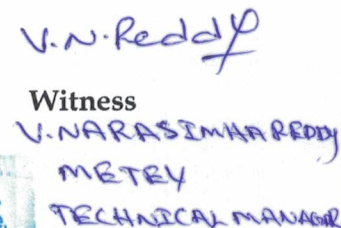 V.N.Reddy
Witness
V.NARASIMHA REDDY
METEY
TECHNICAL MANAGER